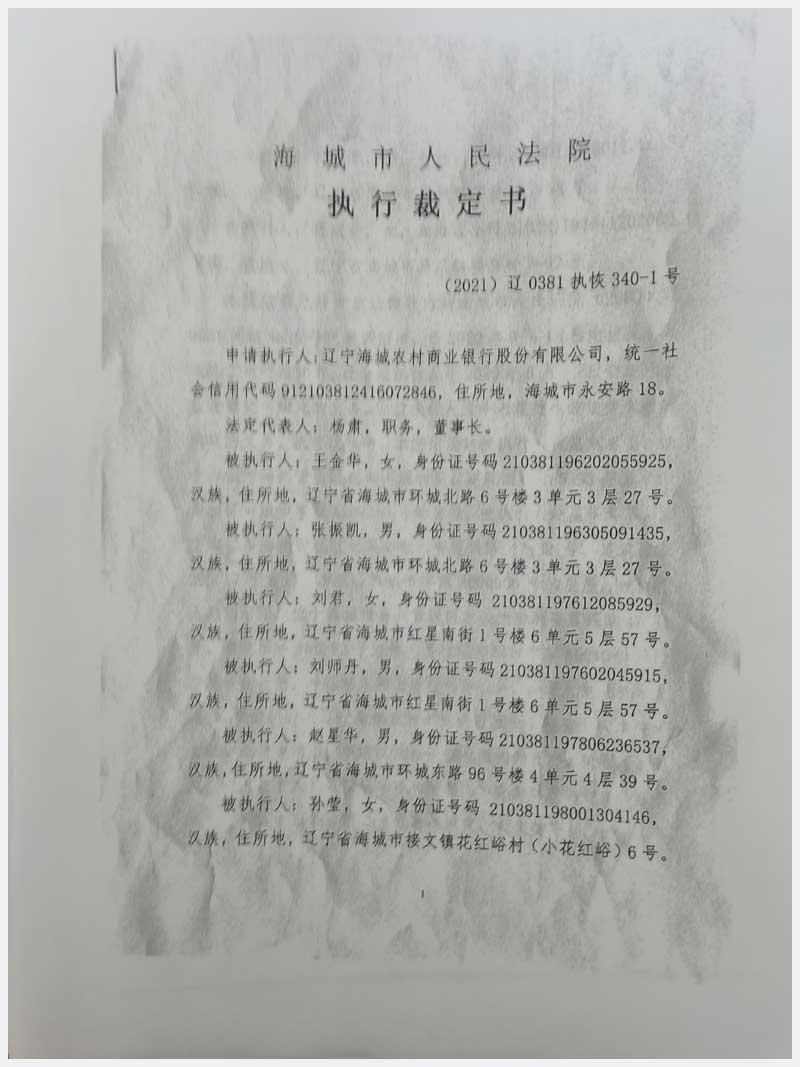 海城市人民法院
执行裁定书
（2021）辽0381执恢340-1号
申请执行人：辽宁海城农村商业银行股份有限公司，统一社
会信用代码912103812416072846，住所地，海城市永安路18。
法定代表人：杨肃，职务，董事长。
被执行人：王金华，女，身份证号码210381196202055925，
汉族，住所地，辽宁省海城市环城北路6号楼3单元3层27号。
被执行人：张振凯，男，身份证号码210381196305091435，
汉族，住所地，辽宁省海城市环城北路6号楼3单元3层27号。
被执行人：刘君，女，身份证号码 210381197612085929，
汉族，住所地，辽宁省海城市红星南街1号楼6单元5层57号。
被执行人：刘师丹，男，身份证号码210381197602045915，
汉族，住所地，辽宁省海城市红星南街1号楼6单元5层57号。
被执行人：赵星华，男，身份证号码210381197806236537，
汉族，住所地，辽宁省海城市环城东路96号楼4单元4层39号。
被执行人：孙莹，女，身份证号码 210381198001304146，
汉族，住所地，辽宁省海城市接文镇花红峪村（小花红峪）6号。
1